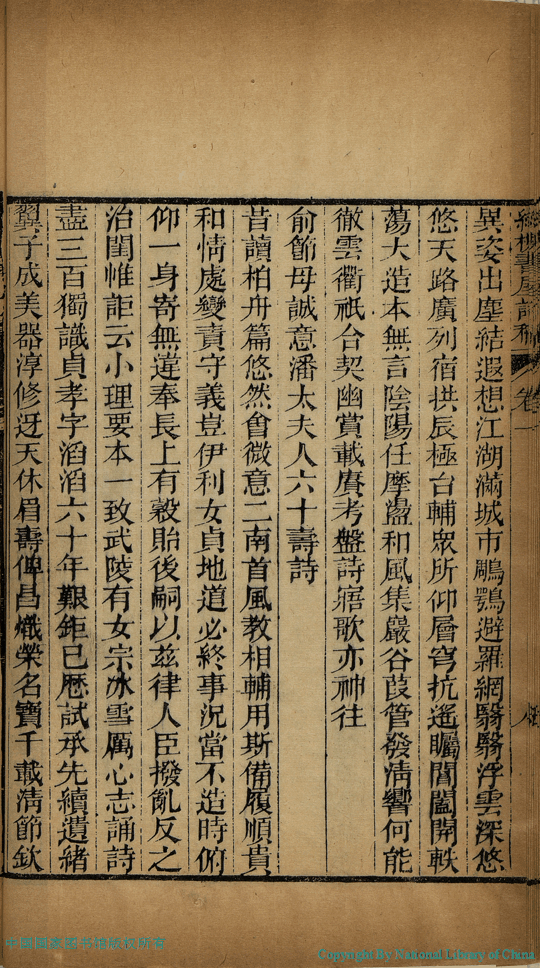 異姿出塵結遐想江湖滿城市鵰鶚避羅網翳翳浮雲深悠
悠天路廣列宿拱辰極台輔衆所仰層穹抗遙矚閶闔開軼
蕩大造本無言陰陽任摩盪和風集巖谷葭管發淸響何能
徹雲衢祇合契幽賞載賡考盤詩寤歌亦神往
俞節母誠意潘太夫人六十壽詩
昔讀柏舟篇悠然會微意二南首風教相輔用斯備履順貴
和情處變責守義豈伊利女貞地道必終事況當不造時俯
仰一身寄無違奉長上有穀貽後嗣以茲律人臣撥亂反之
治閨帷詎云小理要本一致武陵有女宗冰雪厲心志誦詩
盡三百獨識貞孝字滔滔六十年艱鉅已歷試承先續遺緒
翼子成美器淳修迓天休眉壽俾昌熾榮名寶千載淸節欽
書屋詩稿 卷一
中國國家圖書館版權所有
Copyright By National Library of China